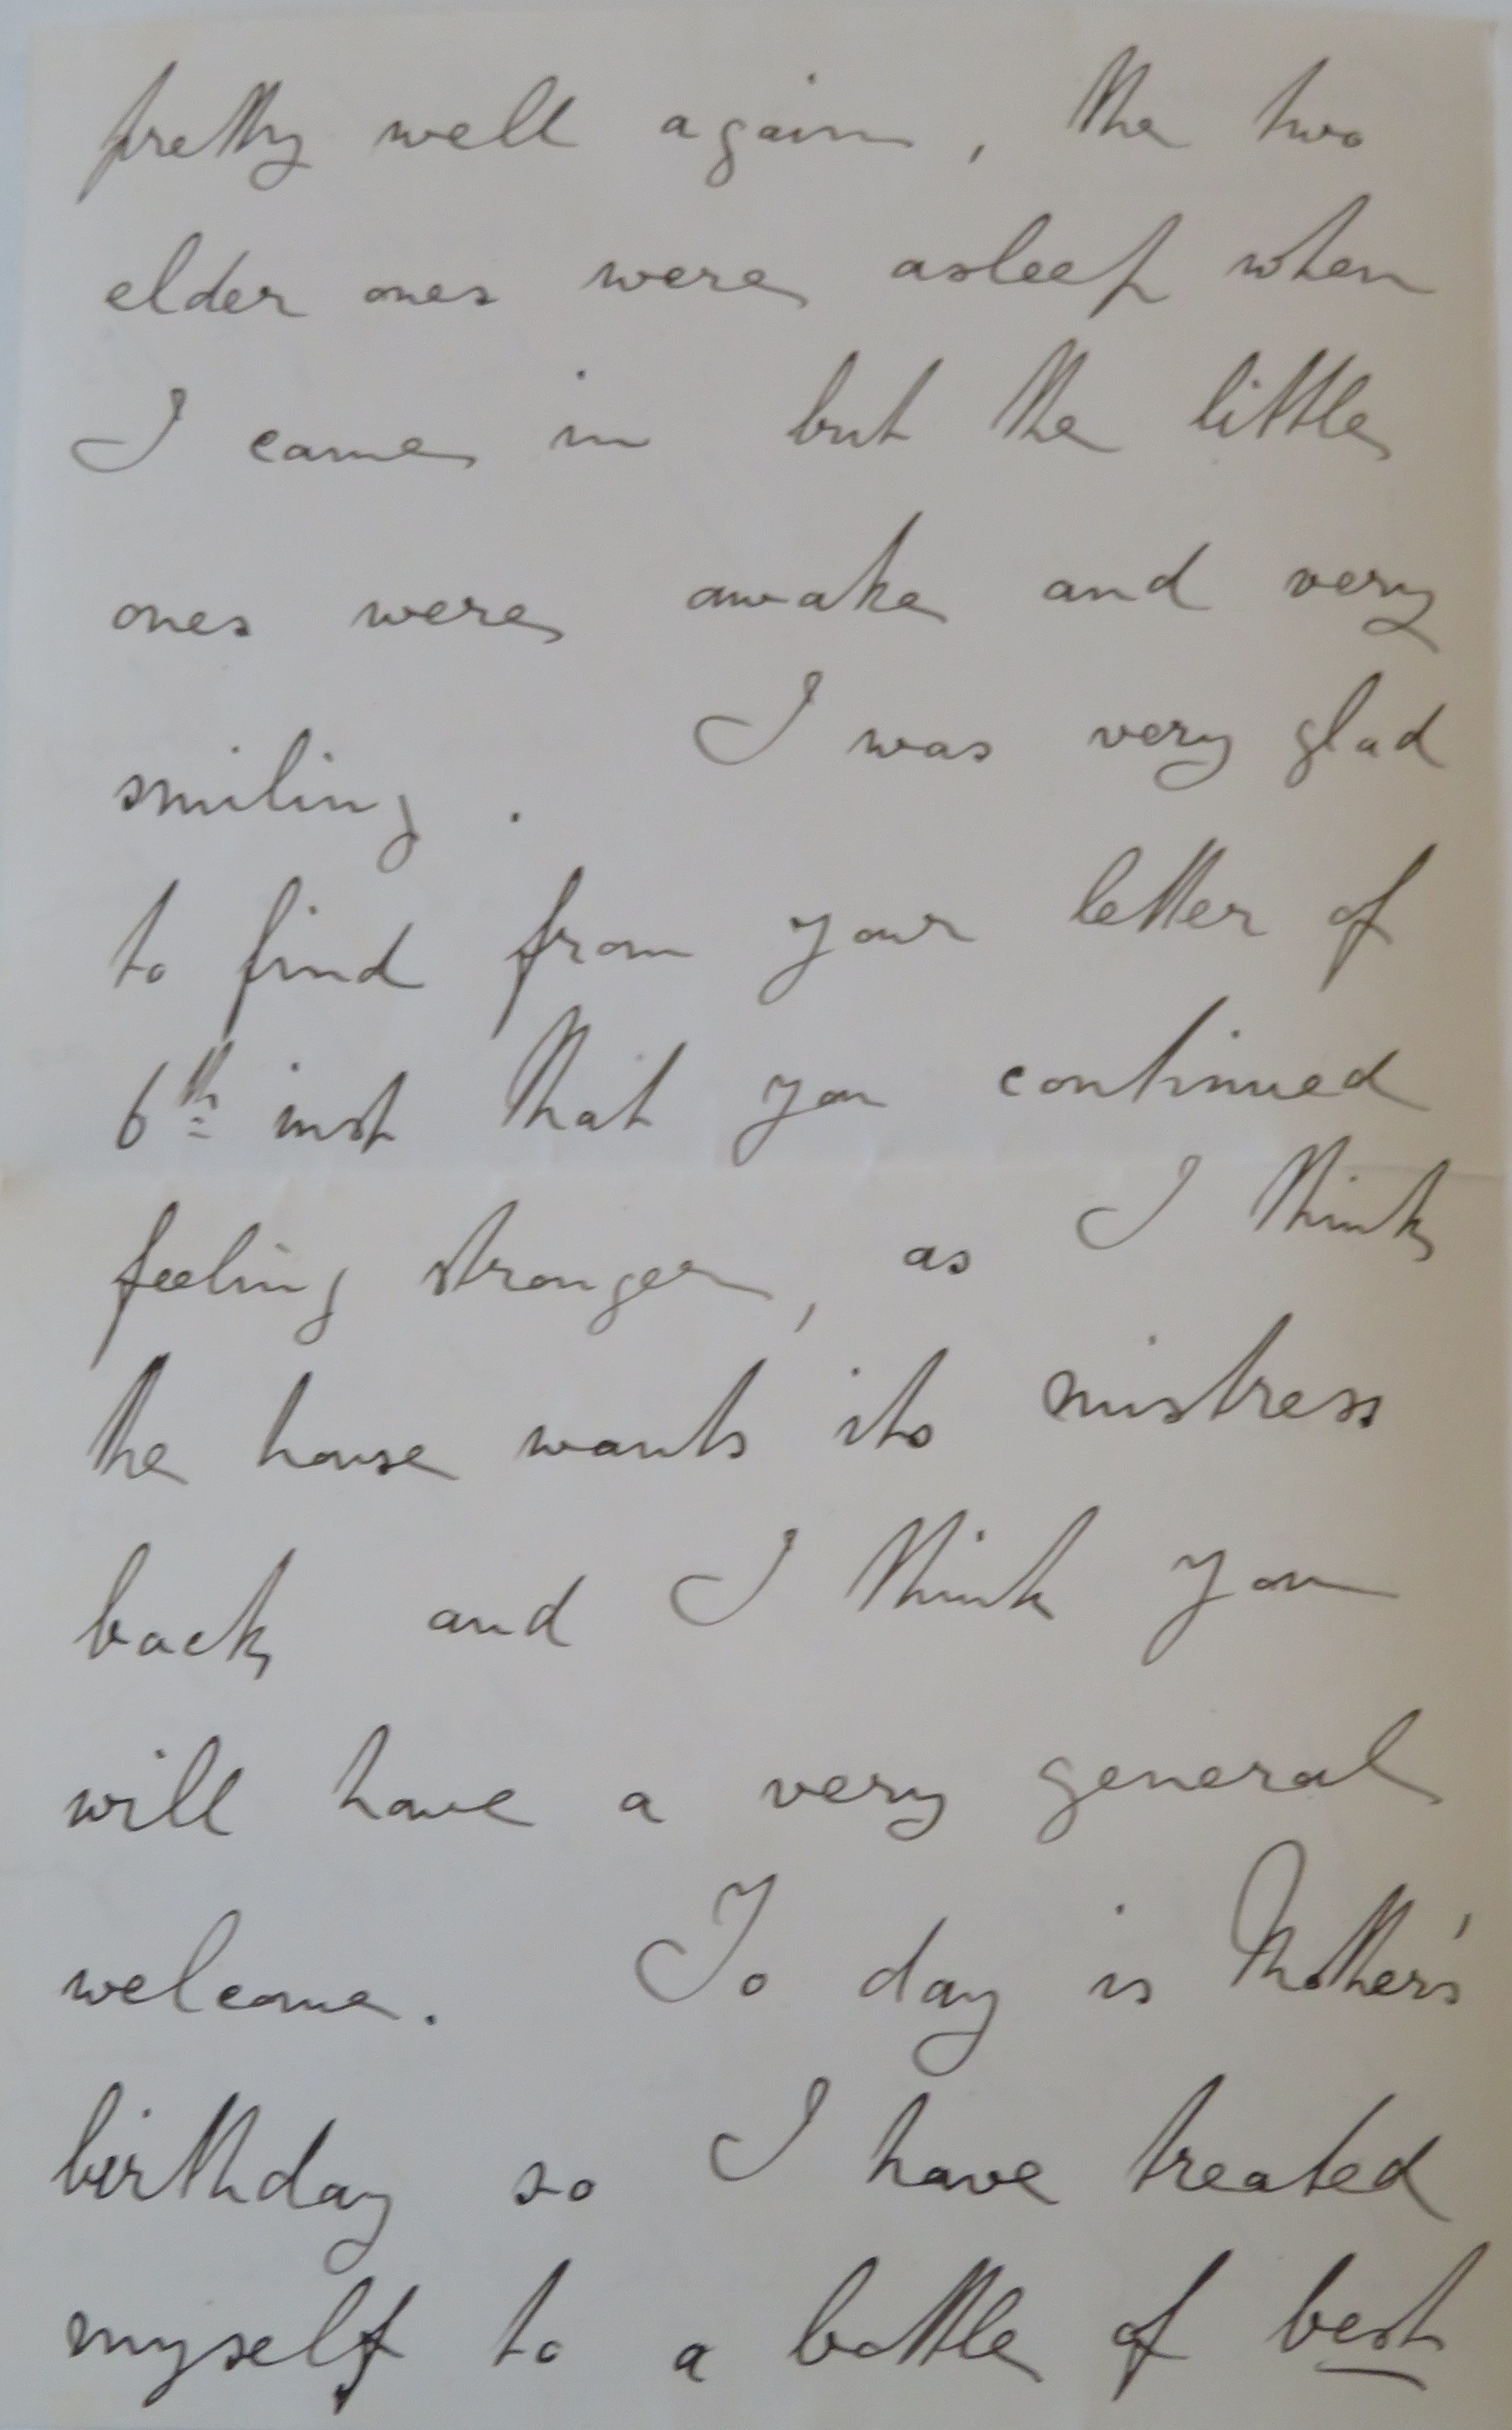 pretty well again, the two
elder ones were asleep when
I came in but the little
ones were awake and very
smiling. I was very glad
to find from your letter of
6th inst that you continued
feeling stronger, as I think
the house wants its mistress
back and I think you
will have a very general
welcome. To day is Mother's
birthday so I have treated
myself to a bottle of best